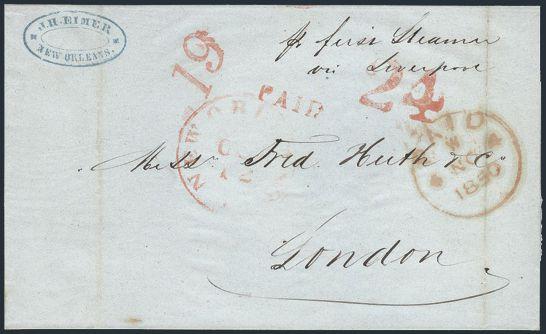 J.H. EIMER
NEW ORLEANS.
pr first Steamer
via Liverpool
19
PAID
24
NEW OR
PAID
1850
Messrs Fred. Huth & Co
London